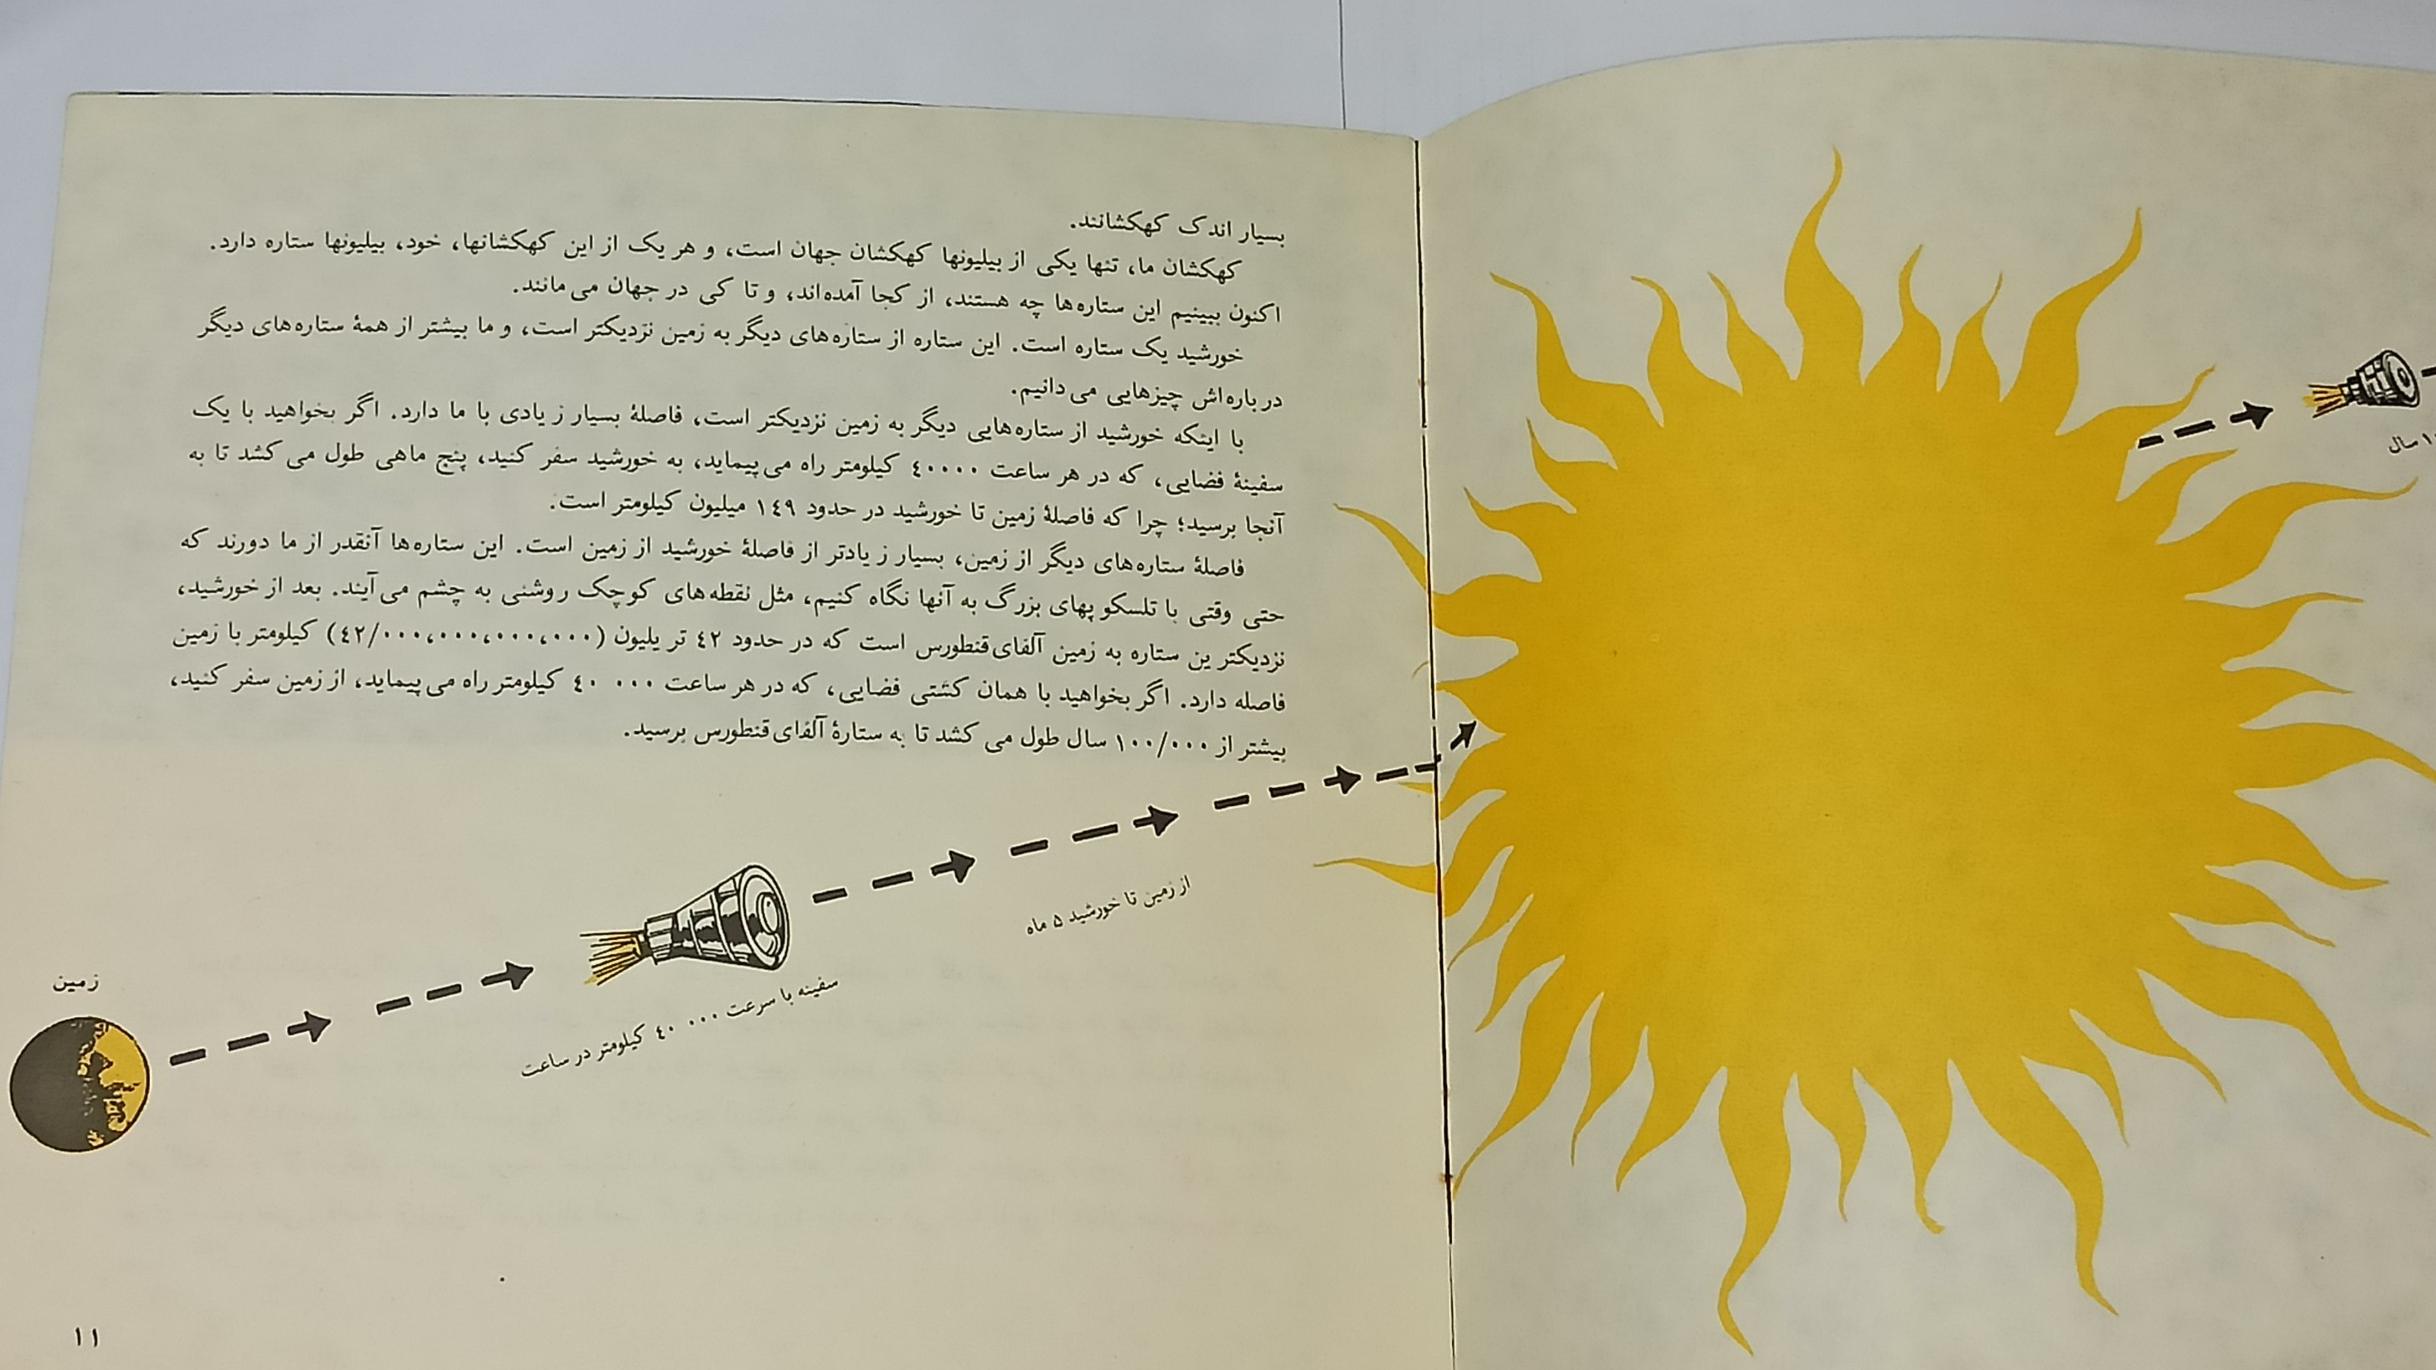 بسیار اندک کهکشانند.
کهکشان ما، تنها یکی از بیلیونها کهکشان جهان است، و هر یک از این کهکشانها، خود، بیلیونها ستاره دارد.
اکنون ببینیم این ستاره‌ها چه هستند، از کجا آمده‌اند، و تا کی در جهان می‌مانند.
خورشید یک ستاره است. این ستاره از ستاره‌های دیگر به زمین نزدیکتر است، و ما بیشتر از همهٔ ستاره‌های دیگر
درباره‌اش چیزهایی می‌دانیم.
با اینکه خورشید از ستاره‌هایی دیگر به زمین نزدیکتر است، فاصلهٔ بسیار زیادی با ما دارد. اگر بخواهید با یک
سفینهٔ فضایی، که در هر ساعت ٤٠٠٠٠ کیلومتر راه می‌پیماید، به خورشید سفر کنید، پنج ماهی طول می‌کشد تا به
آنجا برسید؛ چرا که فاصلهٔ زمین تا خورشید در حدود ١٤٩ میلیون کیلومتر است.
فاصلهٔ ستاره‌های دیگر از زمین، بسیار زیادتر از فاصلهٔ خورشید از زمین است. این ستاره‌ها آنقدر از ما دورند که
حتی وقتی با تلسکوپهای بزرگ به آنها نگاه کنیم، مثل نقطه‌های کوچک روشنی به چشم می‌آیند. بعد از خورشید،
نزدیکترین ستاره به زمین آلفای‌قنطورس است که در حدود ٤٢ تریلیون (٤٢/٠٠٠،٠٠٠،٠٠٠،٠٠٠) کیلومتر با زمین
فاصله دارد. اگر بخواهید با همان کشتی فضایی، که در هر ساعت ٤٠ ٠٠٠ کیلومتر راه می‌پیماید، از زمین سفر کنید،
بیشتر از ١٠٠/٠٠٠ سال طول می کشد تا به ستارهٔ آلفای‌قنطورس برسید.
از زمین تا خورشید ۵ ماه
سفینه با سرعت ٤٠ ٠٠٠ کیلومتر در ساعت
زمین
١١
سال